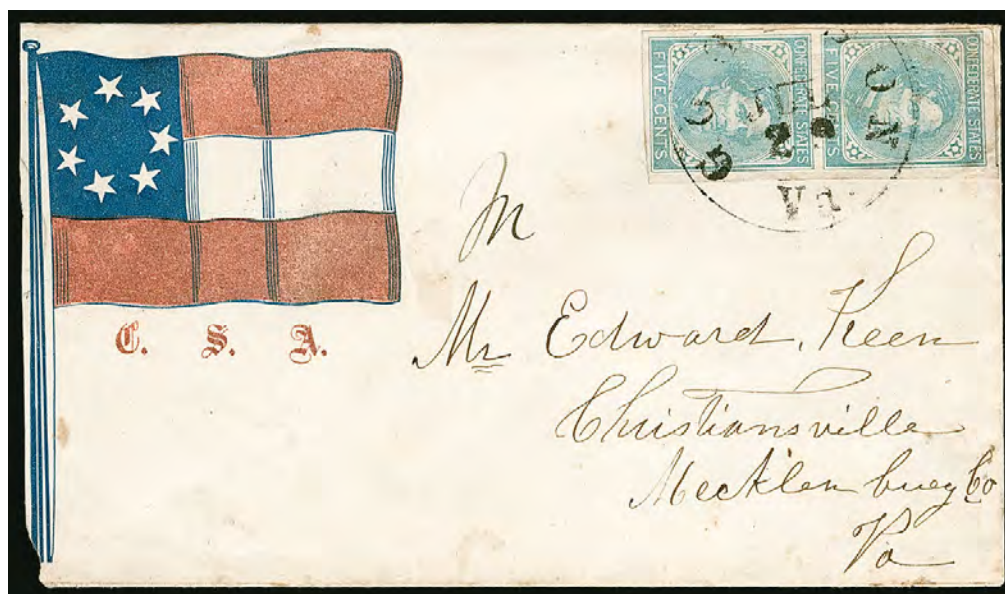 FIVE CENTS
CONFEDERATE STATES
FIVE CENTS
CONFEDERATE STATES
JUL
VA
C. S. A.
M
Mr Edward. Keen
Christiansville
Mecklenburg Co
Va